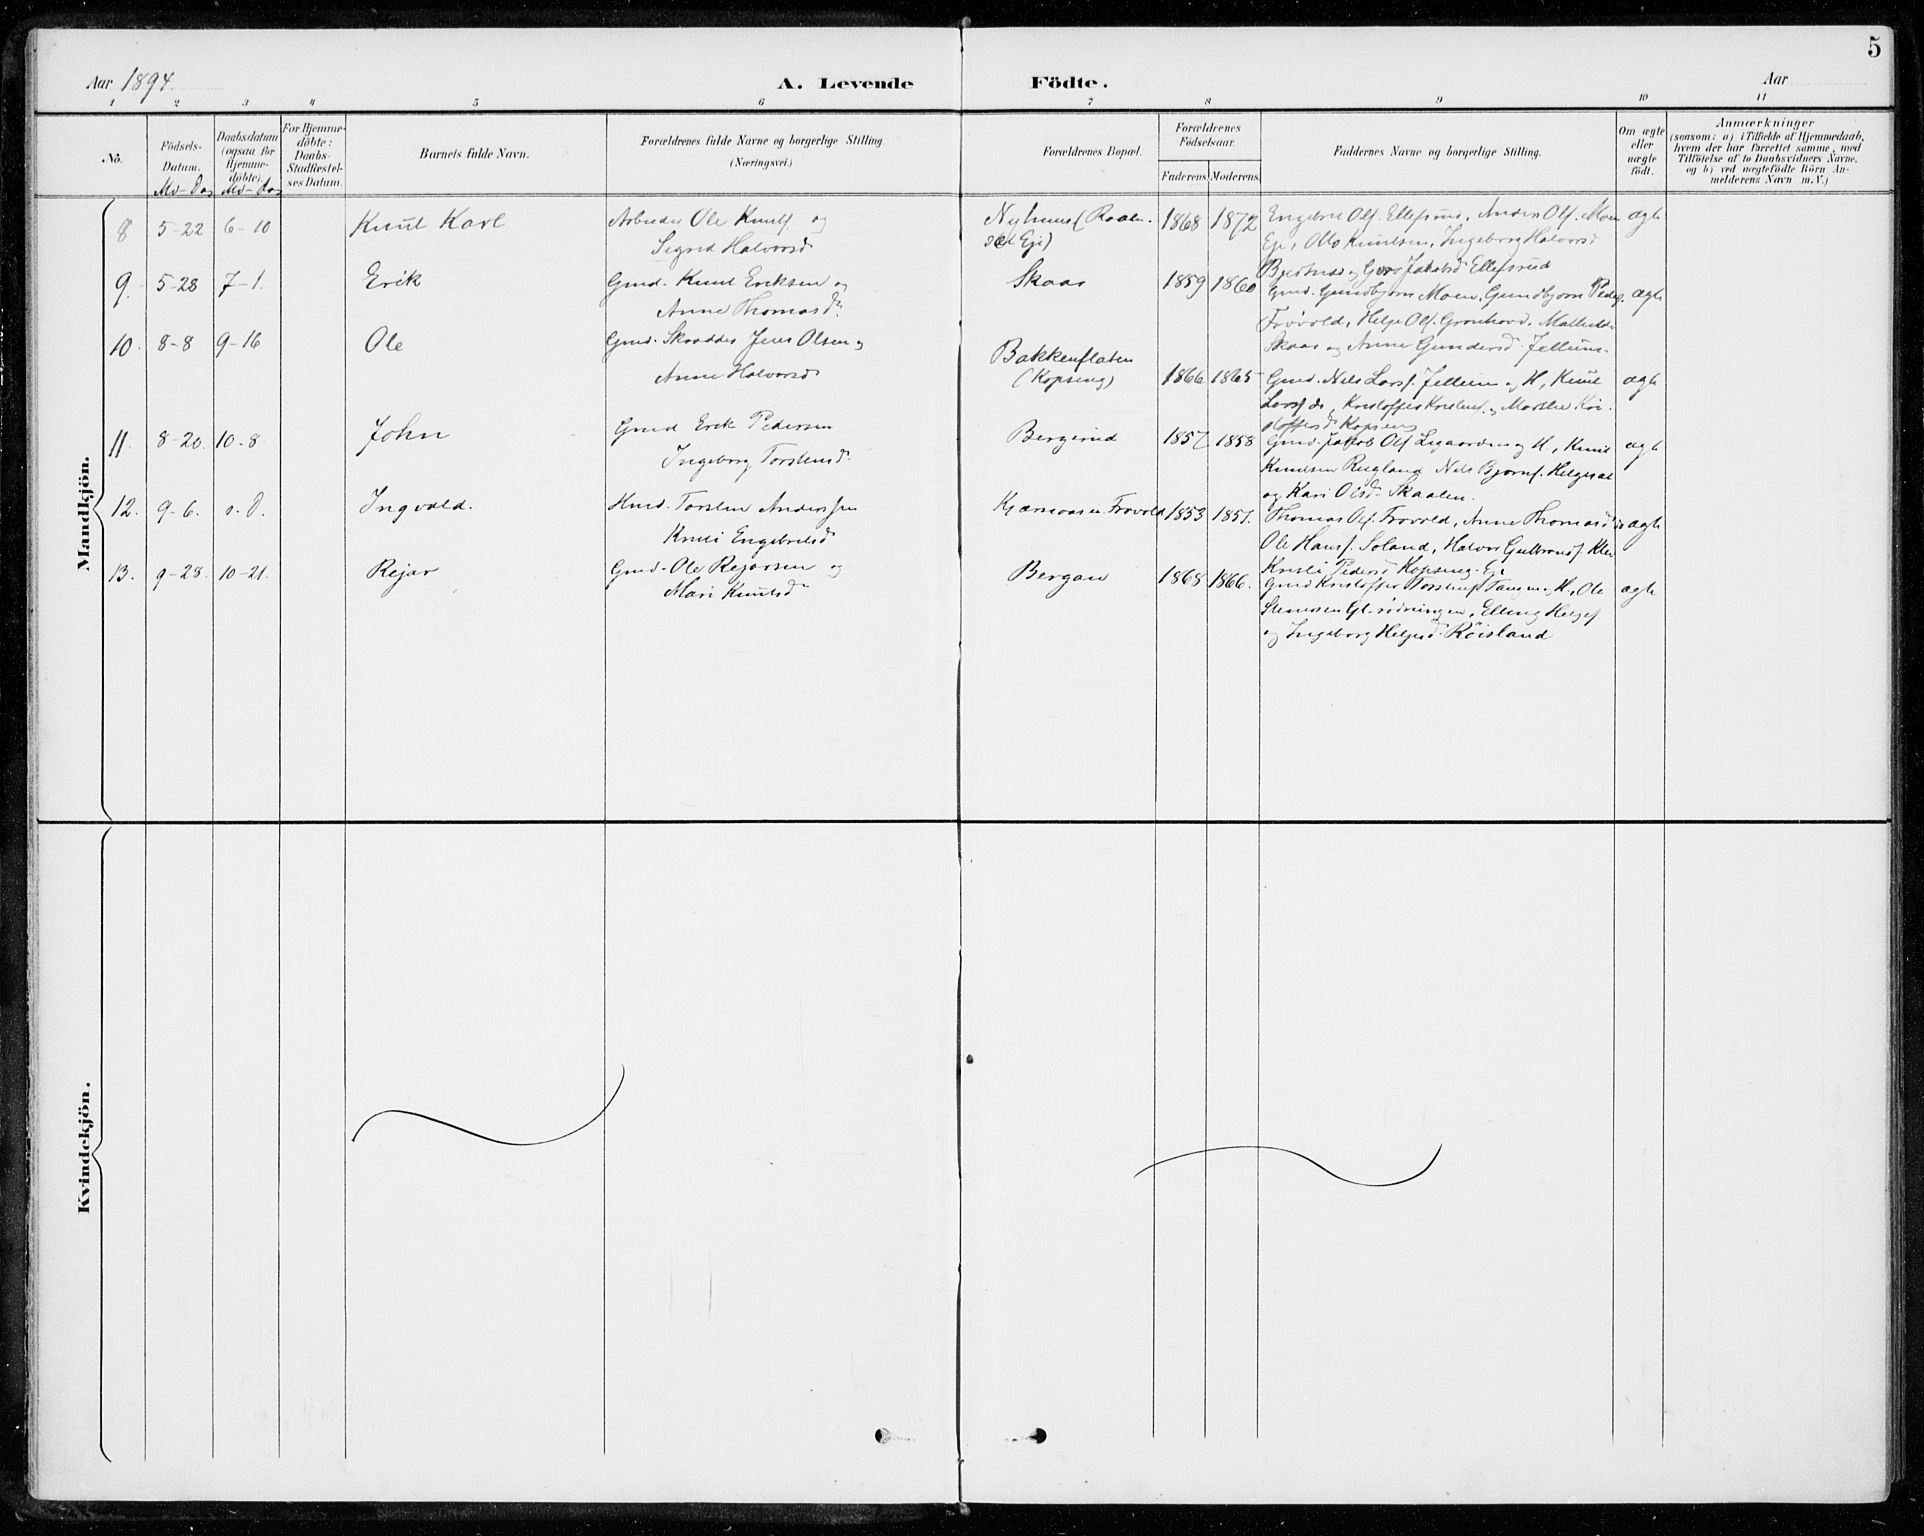 5
Aar 1894. A. Levende Födte. Aar
1 2 3 4 5 6 7 8 9 10 11
No.
Födsels-Datum.
Mo- Dag
Daabsdatum (ogsaa for Hjemme-döbte).
Mo- Dag
For Hjemme-döbte: Daabs-Stadfæstel-ses Datum.
Barnets fulde Navn.
Forældrenes fulde Navne og borgerlige Stilling.
(Næringsvei.)
Forældrenes Bopæl.
Forældrenes Födselsaar.
Faderens. Moderens.
Faddernes Navne og borgerlige Stilling.
Om ægte eller uægte födt.
Anmærkninger
(saasom: a) i Tilfælde af Hjemmedaab,
hvem der har forrettet samme, med
Tilföielse af to Daabsvidners Navne,
og b) ved uægtefödte Börn An-
melderens Navn m. V.)
Mandkjön.
8 5-22 6-10 Knut Karl Arbeider Ole Knuts. og
Sigrid Halvorsd
Nyhuus (Raalen-
set Eje) 1868 1872 Engebret Ols. Ellefsrud, Anders Ols. Moen ægte
Eje, Otto Knutsen, Ingeborg Halvorsd
og Guro Jakobsd Ellefsrud
9. 5-28 7-1. Erik Gmd. Knut Eriksen og
Anne Thomasd.
Skaar 1859 1860 Gmd. Gundbjørn Moen, Gundbjørn Peders. ægte
Frövold, Helje Ols. Grönhovd, Mathilde
Skaar og Anne Gundersd. Jellum.
10. 8-8 9-16 Ole Gmd. Skrædder Jens Olsen og
Anne Halvorsd
Bakkenflaten
(Kopseng) 1866 1865 Gmd. Nils Lars. Jellum og H, Knut ægte
Lars. ds, Kristoffer og Marthe Kri-
stoffersd Kopseng
11. 8-20. 10-8 John Gmd Erik Pedersen
Ingeborg Torstensd.
Bergerud 1857 1858 Gmd. Jakob Ols. Ligaarden og H, Knut ægte
Knutsen Rugland Nils Bjørns. Helgeset
og Kari Olsd. Skaalen.
12. 9-6. s. D. Ingvald. Hmd. Torsten Anderssen
Kristi Engebretsd
Kjærnaasen Frövold 1853 1851. Thomas Ols. Frövold, Anne Thomasd ds ægte
Ole Hans. Soland, Halvor Gulbrands.
Kristi Pedersd Kopseng Eje
13. 9-28. 10-21. Rejar Gmd. Ole Rejarsen og
Mari Knutsd
Bergan 1868 1866. Gmd Kristoffer Torstens. Tangen og H, Ole ægte
Stensen Gl-rödningen, Elling Helges.
og Ingeborg Helgesd. Röisland
Kvindekjön.